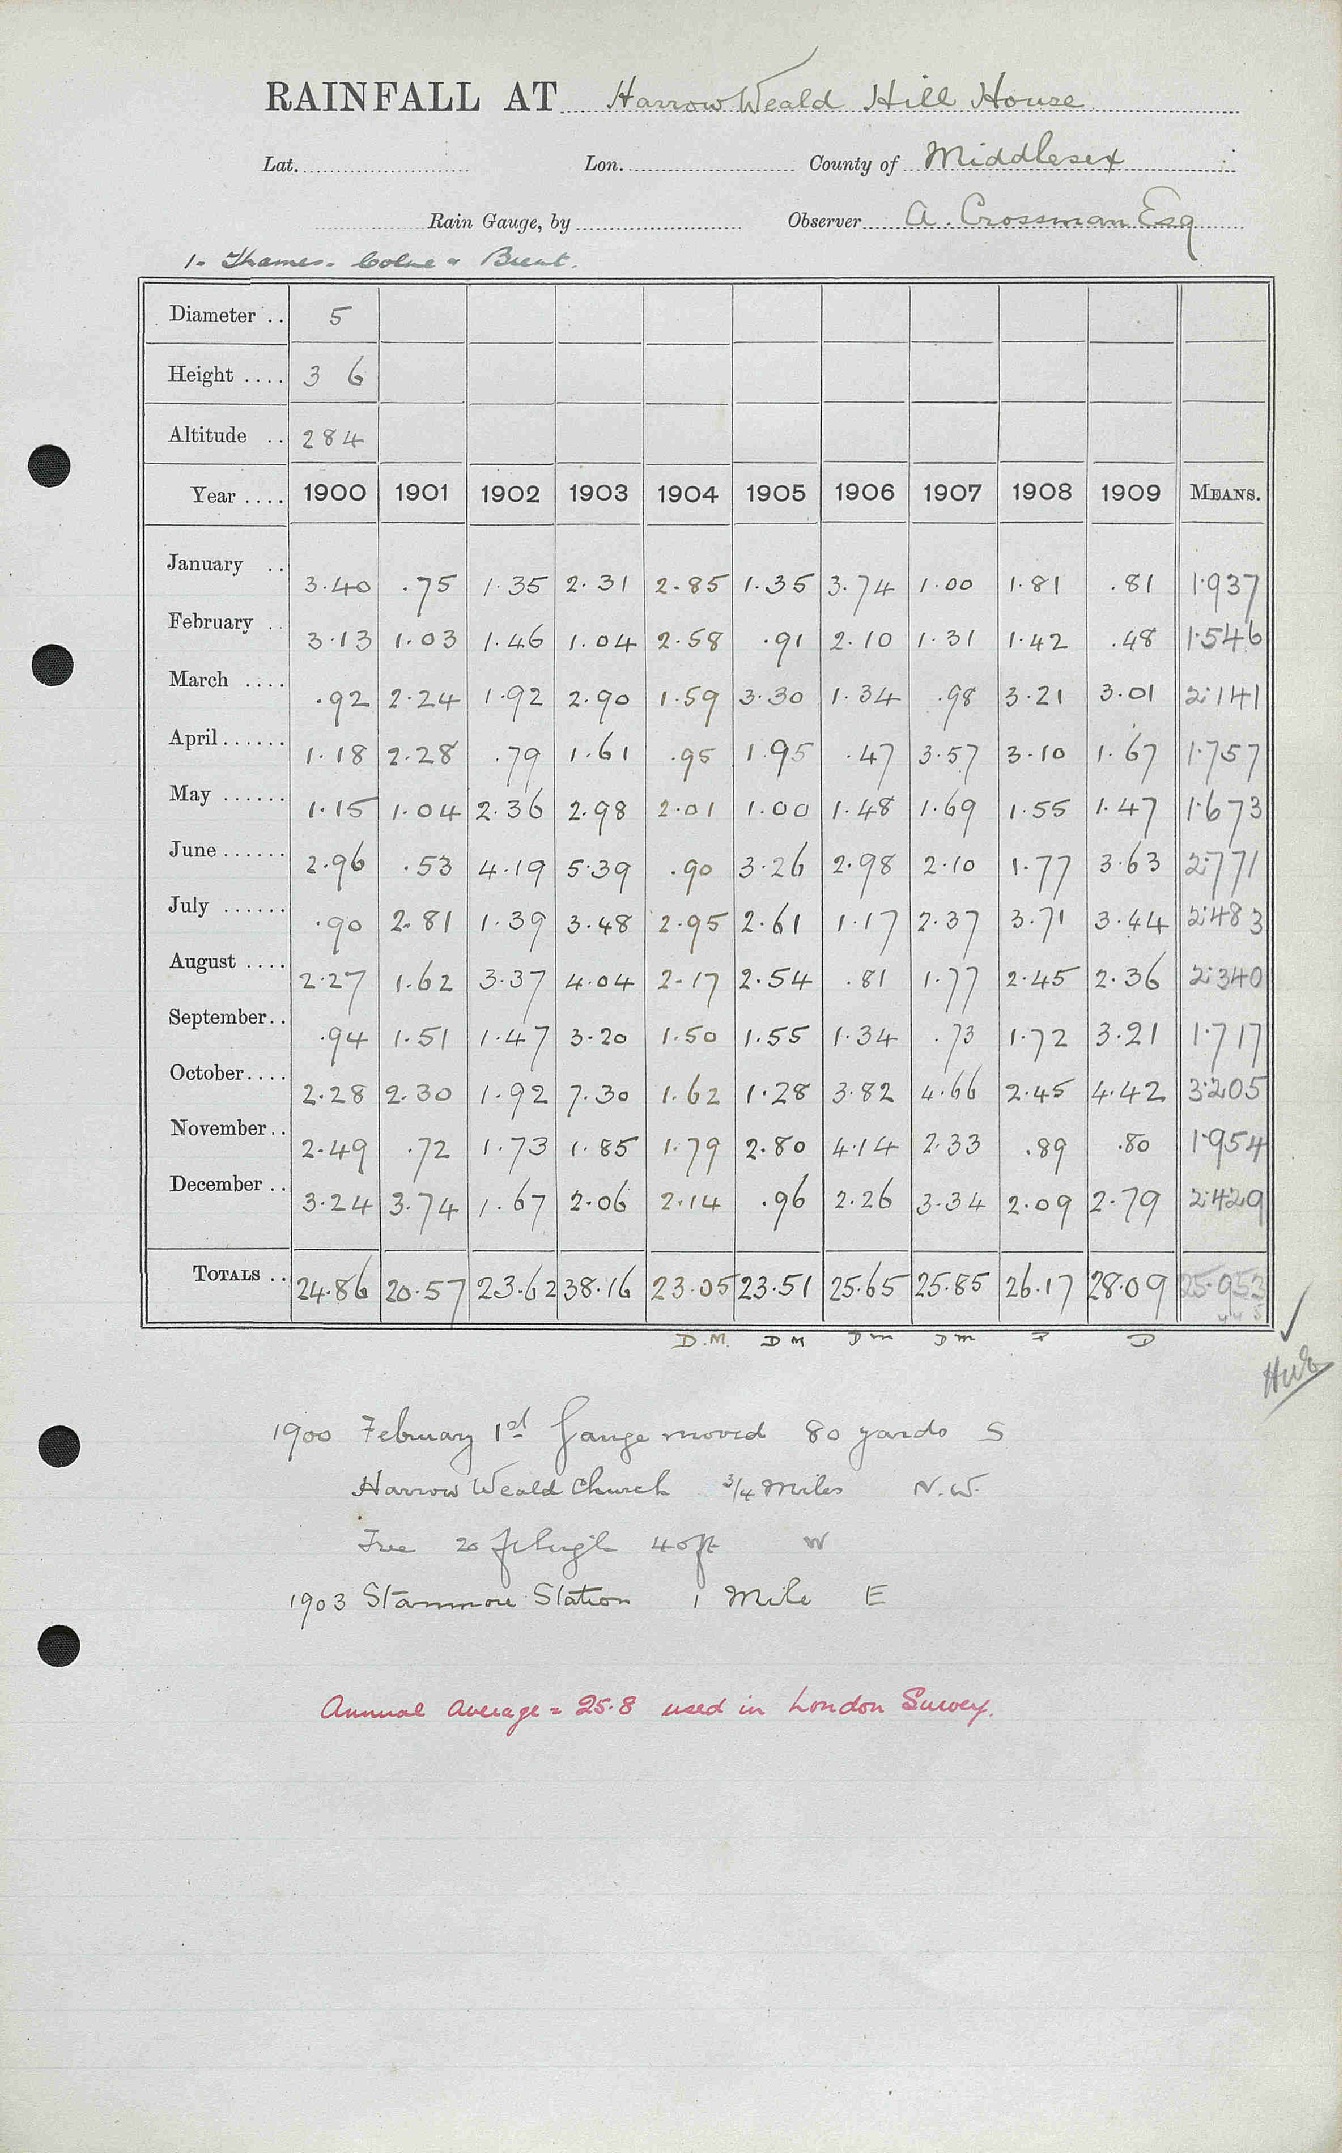 RAINFALL AT Harrow Weald Hill House
Lat. Lon. County of Middlesex
Rain Gauge, by Observer A. Crossman Esq
1- Thames. Colne & Brent.
Diameter .. 5
Height .... 3 6
Altitude .. 284
Year .... 1900 1901 1902 1903 1904 1905 1906 1907 1908 1909 MEANS.
January .. 3.40 .75 1.35 2.31 2.85 1.35 3.74 1.00 1.81 .81 1.937
February .. 3.13 1.03 1.46 1.04 2.58 .91 2.10 1.31 1.42 .48 1.546
March .... .92 2.24 1.92 2.90 1.59 3.30 1.34 .98 3.21 3.01 2.141
April...... 1.18 2.28 .79 1.61 .95 1.95 .47 3.57 3.10 1.67 1.757
May ...... 1.15 1.04 2.36 2.98 2.01 1.00 1.48 1.69 1.55 1.47 1.673
June ...... 2.96 .53 4.19 5.39 .90 3.26 2.98 2.10 1.77 3.63 2.771
July ...... .90 2.81 1.39 3.48 2.95 2.61 1.17 2.37 3.71 3.44 2.483
August .... 2.27 1.62 3.37 4.04 2.17 2.54 .81 1.77 2.45 2.36 2.340
September.. .94 1.51 1.47 3.20 1.50 1.55 1.34 .73 1.72 3.21 1.717
October.... 2.28 2.30 1.92 7.30 1.62 1.28 3.82 4.66 2.45 4.42 3.205
November.. 2.49 .72 1.73 1.85 1.79 2.80 4.14 2.33 .89 .80 1.954
December .. 3.24 3.74 1.67 2.06 2.14 .96 2.26 3.34 2.09 2.79 2.429
TOTALS .. 24.86 20.57 23.62 38.16 23.05 23.51 25.65 25.85 26.17 28.09 25.953
D.M. DM Dm Dm D
1900 February 1st Gauge moved 80 yards S
Harrow Weald Church 3/4 Miles N.W.
Tree 20 ft high 40ft W
1903 Stanmore Station 1 Mile E
Annual Average = 25.8 used in London Survey.